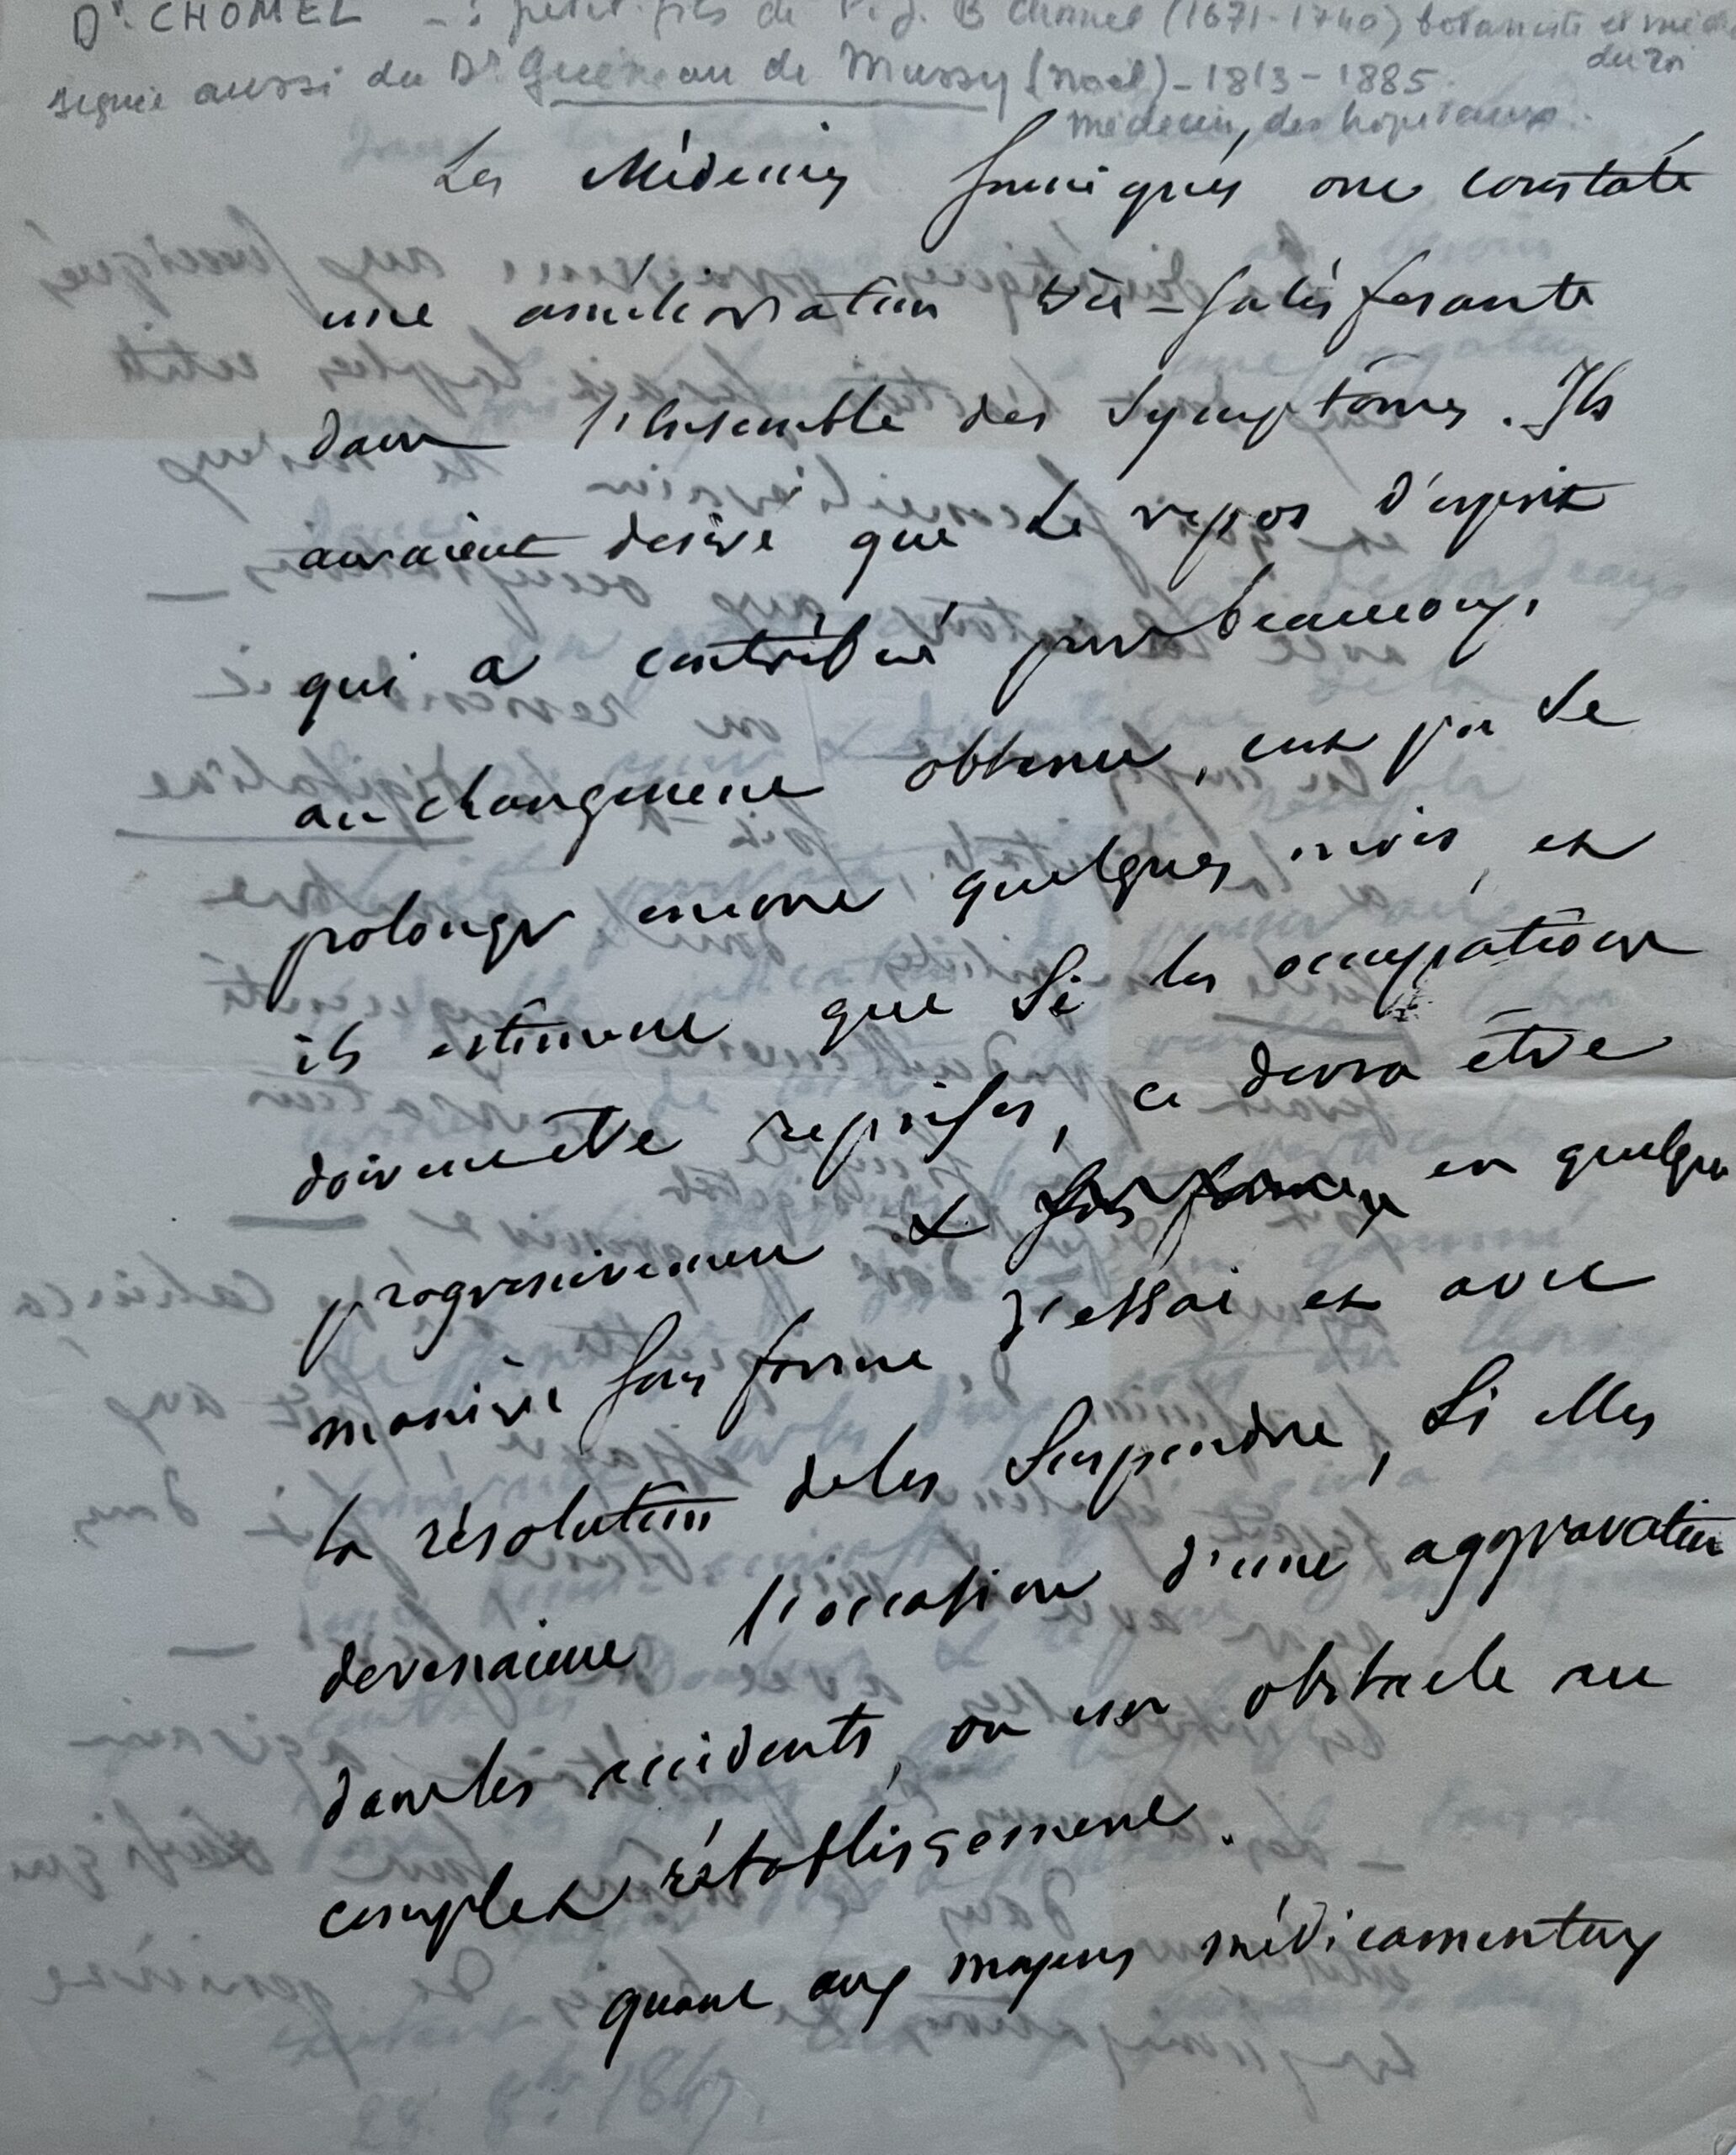 Dr. CHOMEL - : petit-fils de P. J. B Chomel (1671-1740) botaniste et méde
du roi
signée aussi du Dr Gueneau de Mussy (Noël) - 1813 - 1885
médecin, des hôpitaux.
Les Médecins soussignés ont constaté
une amélioration très-satisfesante
dans l'ensemble des symptômes. Ils
auraient desiré que le repos d'esprit
qui a contribué pour beaucoup,
au changement obtenu, eut pu se
prolonger encore quelques mois, et
ils estiment que si les occupations
doivent être reprises, ce devra être
progressivement & en quelque
manière sous forme d'essai et avec
la résolution de les suspendre, si elles
devenaient l'occasion d'une aggravation
dans les accidents, ou un obstacle au
complet rétablissement.
quant aux moyens médicamenteux